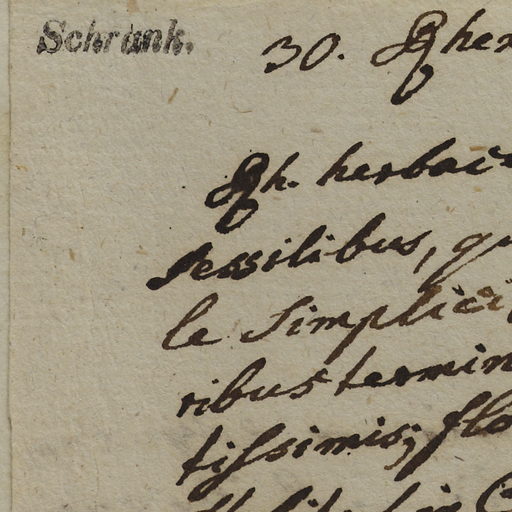 Schrank.
30.
herbac
sessilibus, qu
le simplici
ribus termin
tissimis; flo